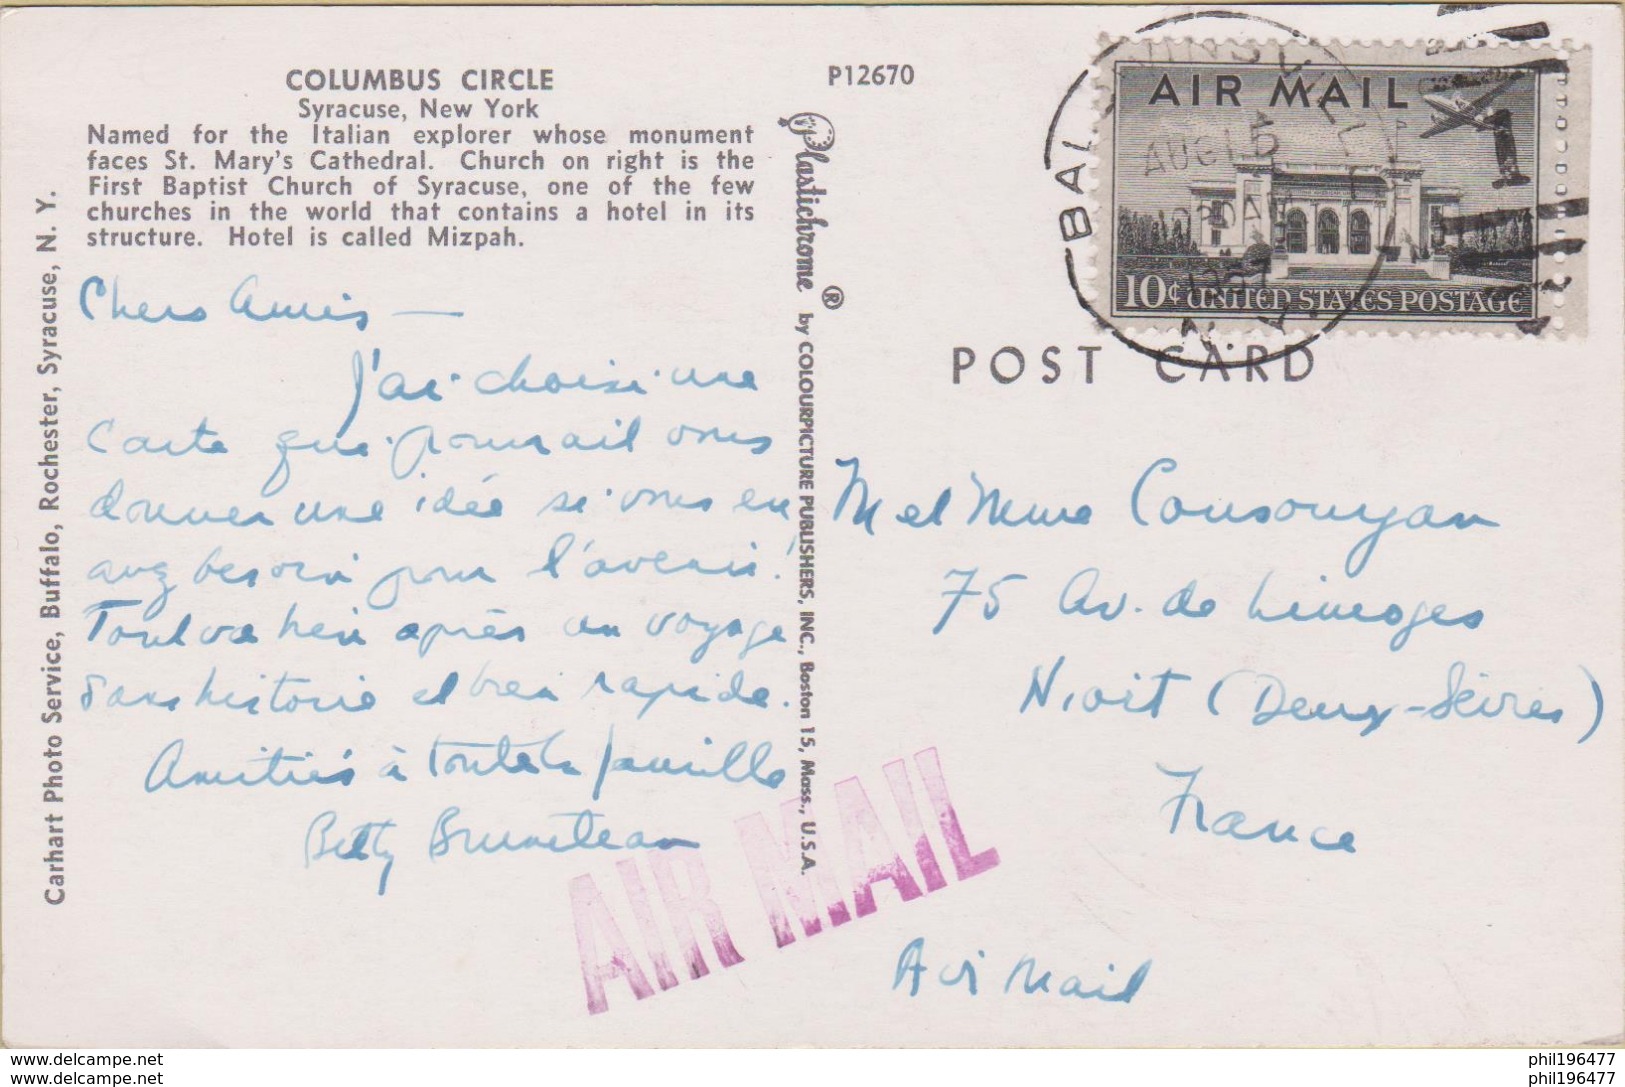 COLUMBUS CIRCLE
Syracuse, New York
Named for the Italian explorer whose monument
faces St. Mary's Cathedral. Church on right is the
First Baptist Church of Syracuse, one of the few
churches in the world that contains a hotel in its
structure. Hotel is called Mizpah.
P12670
Carhart Photo Service, Buffalo, Rochester, Syracuse, N. Y.
Plastichrome ® by COLOURPICTURE PUBLISHERS, INC., Boston 15, Mass., U.S.A.
Chers Amis —
J'ai choisi une
carte qui pourrait vous
donner une idée si vous en
avez besoin pour l'avenir!
Tout va bien après un voyage
sans histoire et bien rapide.
Amitiés à toute la famille
Betty Bruneteau
AIR MAIL
AIR MAIL
10¢ UNITED STATES POSTAGE
AUG 15
1957
N. Y.
POST CARD
M et Mme
75 Av. de Limoges
Niort (Deux-Sèvres)
France
Air Mail
www.delcampe.net
www.delcampe.net
phil196477
phil196477